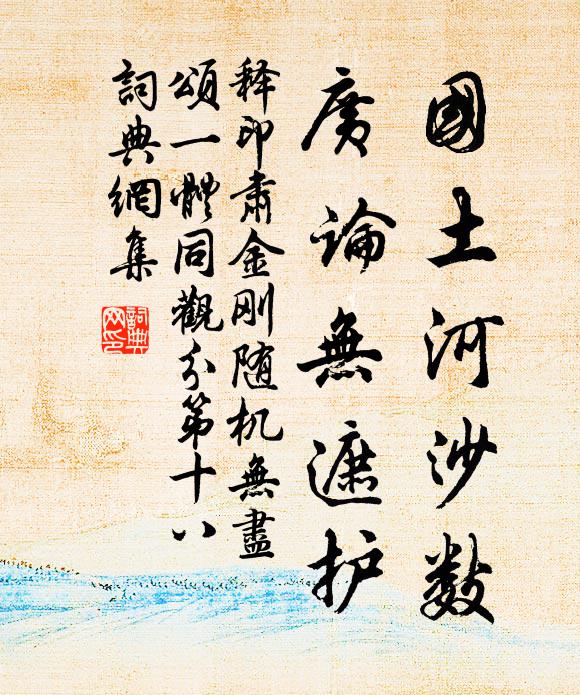 國土河沙數
廣論無遮护
释印肅金刚随机無盡
頌一體同觀分第十八
詞典網集
詞典
网印